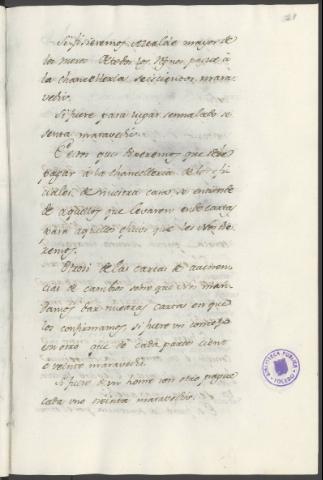 Si ficieremos Alcalde mayor de
la mesta de todos los Regnos pague à
la chancelleria seiscientos mara-
vedis.
Si fuere para lugar sennalado se-
senta maravedis.
Estos que dixeremos que debe
pagar à la chancelleria de los ofi-
ciales de nuestra casa se entiende
de aquellos que levaren ende cartas
para aquellos oficios que les Nos die-
remos.
Otrosi de las cartas de avenen-
cias de cambios sobre que Nos man-
damos dar nuestras cartas en que
los confirmamos si fuere un concejo
con otro que dé cada parte ciento
è veinte maravedis.
Si fuere de un home con otro pague
cada uno treinta maravedis.
BIBLIOTECA PUBLICA
TOLEDO